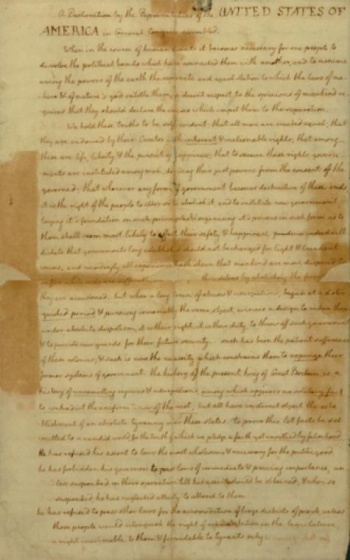 A Declaration by the Representatives of the UNITED STATES OF
AMERICA in General Congress assembled.
When in the course of human events it becomes necessary for one people to
dissolve the political bands which have connected them with another, and to assume
among the powers of the earth the separate and equal station to which the laws of na-
-ture & of nature's god entitle them, a decent respect to the opinions of mankind re-
-quires that they should declare the causes which impel them to the separation.
We hold these truths to be self evident: that all men are created equal; that
they are endowed by their Creator with inherent & inalienable rights; that among
these are life, liberty, & the pursuit of happiness; that to secure these rights, govern-
-ments are instituted among men, deriving their just powers from the consent of the
governed; that whenever any form of government becomes destructive of these ends,
it is the right of the people to alter or to abolish it, and to institute new government,
laying it's foundation on such principles & organising it's powers in such form as to
them shall seem most likely to effect their safety & happiness. prudence indeed will
dictate that governments long established should not be changed for light & transient
causes, and accordingly all experience hath shewn that mankind are more disposed to
themselves by abolishing the forms
they are accustomed. but when a long train of abuses & usurpations, begun at a distin-
guished period & pursuing invariably the same object, evinces a design to reduce them
under absolute despotism, it is their right, it is their duty to throw off such government
& to provide new guards for their future security. such has been the patient sufferance
of these colonies; & such is now the necessity which constrains them to expunge their
former systems of government. the history of the present king of Great Britain, is a
history of unremitting injuries & usurpations, among which appears no solitary fact
to contradict the uniform tenor of the rest, but all have in direct object the esta-
blishment of an absolute tyranny over these states. to prove this let facts be sub-
mitted to a candid world, for the truth of which we pledge a faith yet unsullied by falsehood.
He has refused his assent to laws the most wholesome & necessary for the public good.
he has forbidden his governors to pass laws of immediate & pressing importance, un-
less suspended in their operation till his assent should be obtained; & when so
suspended, he has neglected utterly to attend to them.
he has refused to pass other laws for the accomodation of large districts of people, unless
those people would relinquish the right of representation in the legislature,
a right inestimable to them, & formidable to tyrants only.